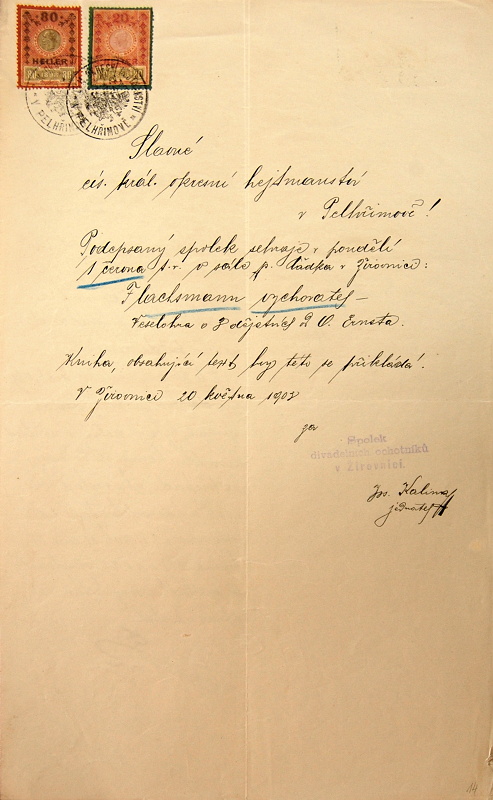 80
HELLER
20
V PELHŘIMOVĚ
V PELHŘIMOVĚ
Slavné
cís. král. okresní hejtmanství
v Pelhřimově!
Podepsaný spolek sehraje v pondělí
1 června t. r. v sále p. Sádka v Žirovnici:
Flachsmann vychovatel –
Veselohra o 3 dějstvích od O. Ernsta.
Kniha, obsahující text hry této se přikládá.
V Žirovnici 20 května 1903
za
Spolek
divadelních ochotníků
v Žirovnici.
Jos. Kalina
jednatel
14